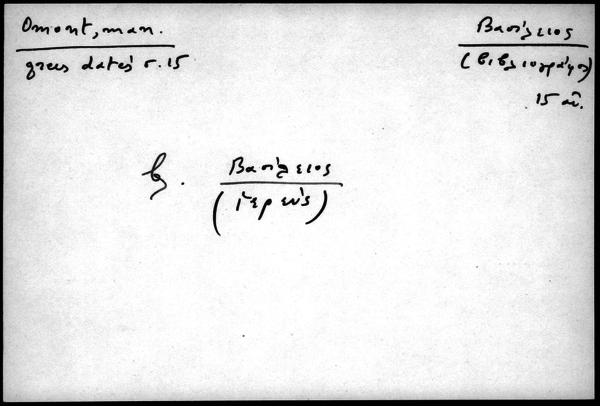 Omont, man.
grecs datés σ. 15
Βασίλειος
(βιβλιογράφος)
15 αἰ.
βλ. Βασίλειος
(ἱερεύς)